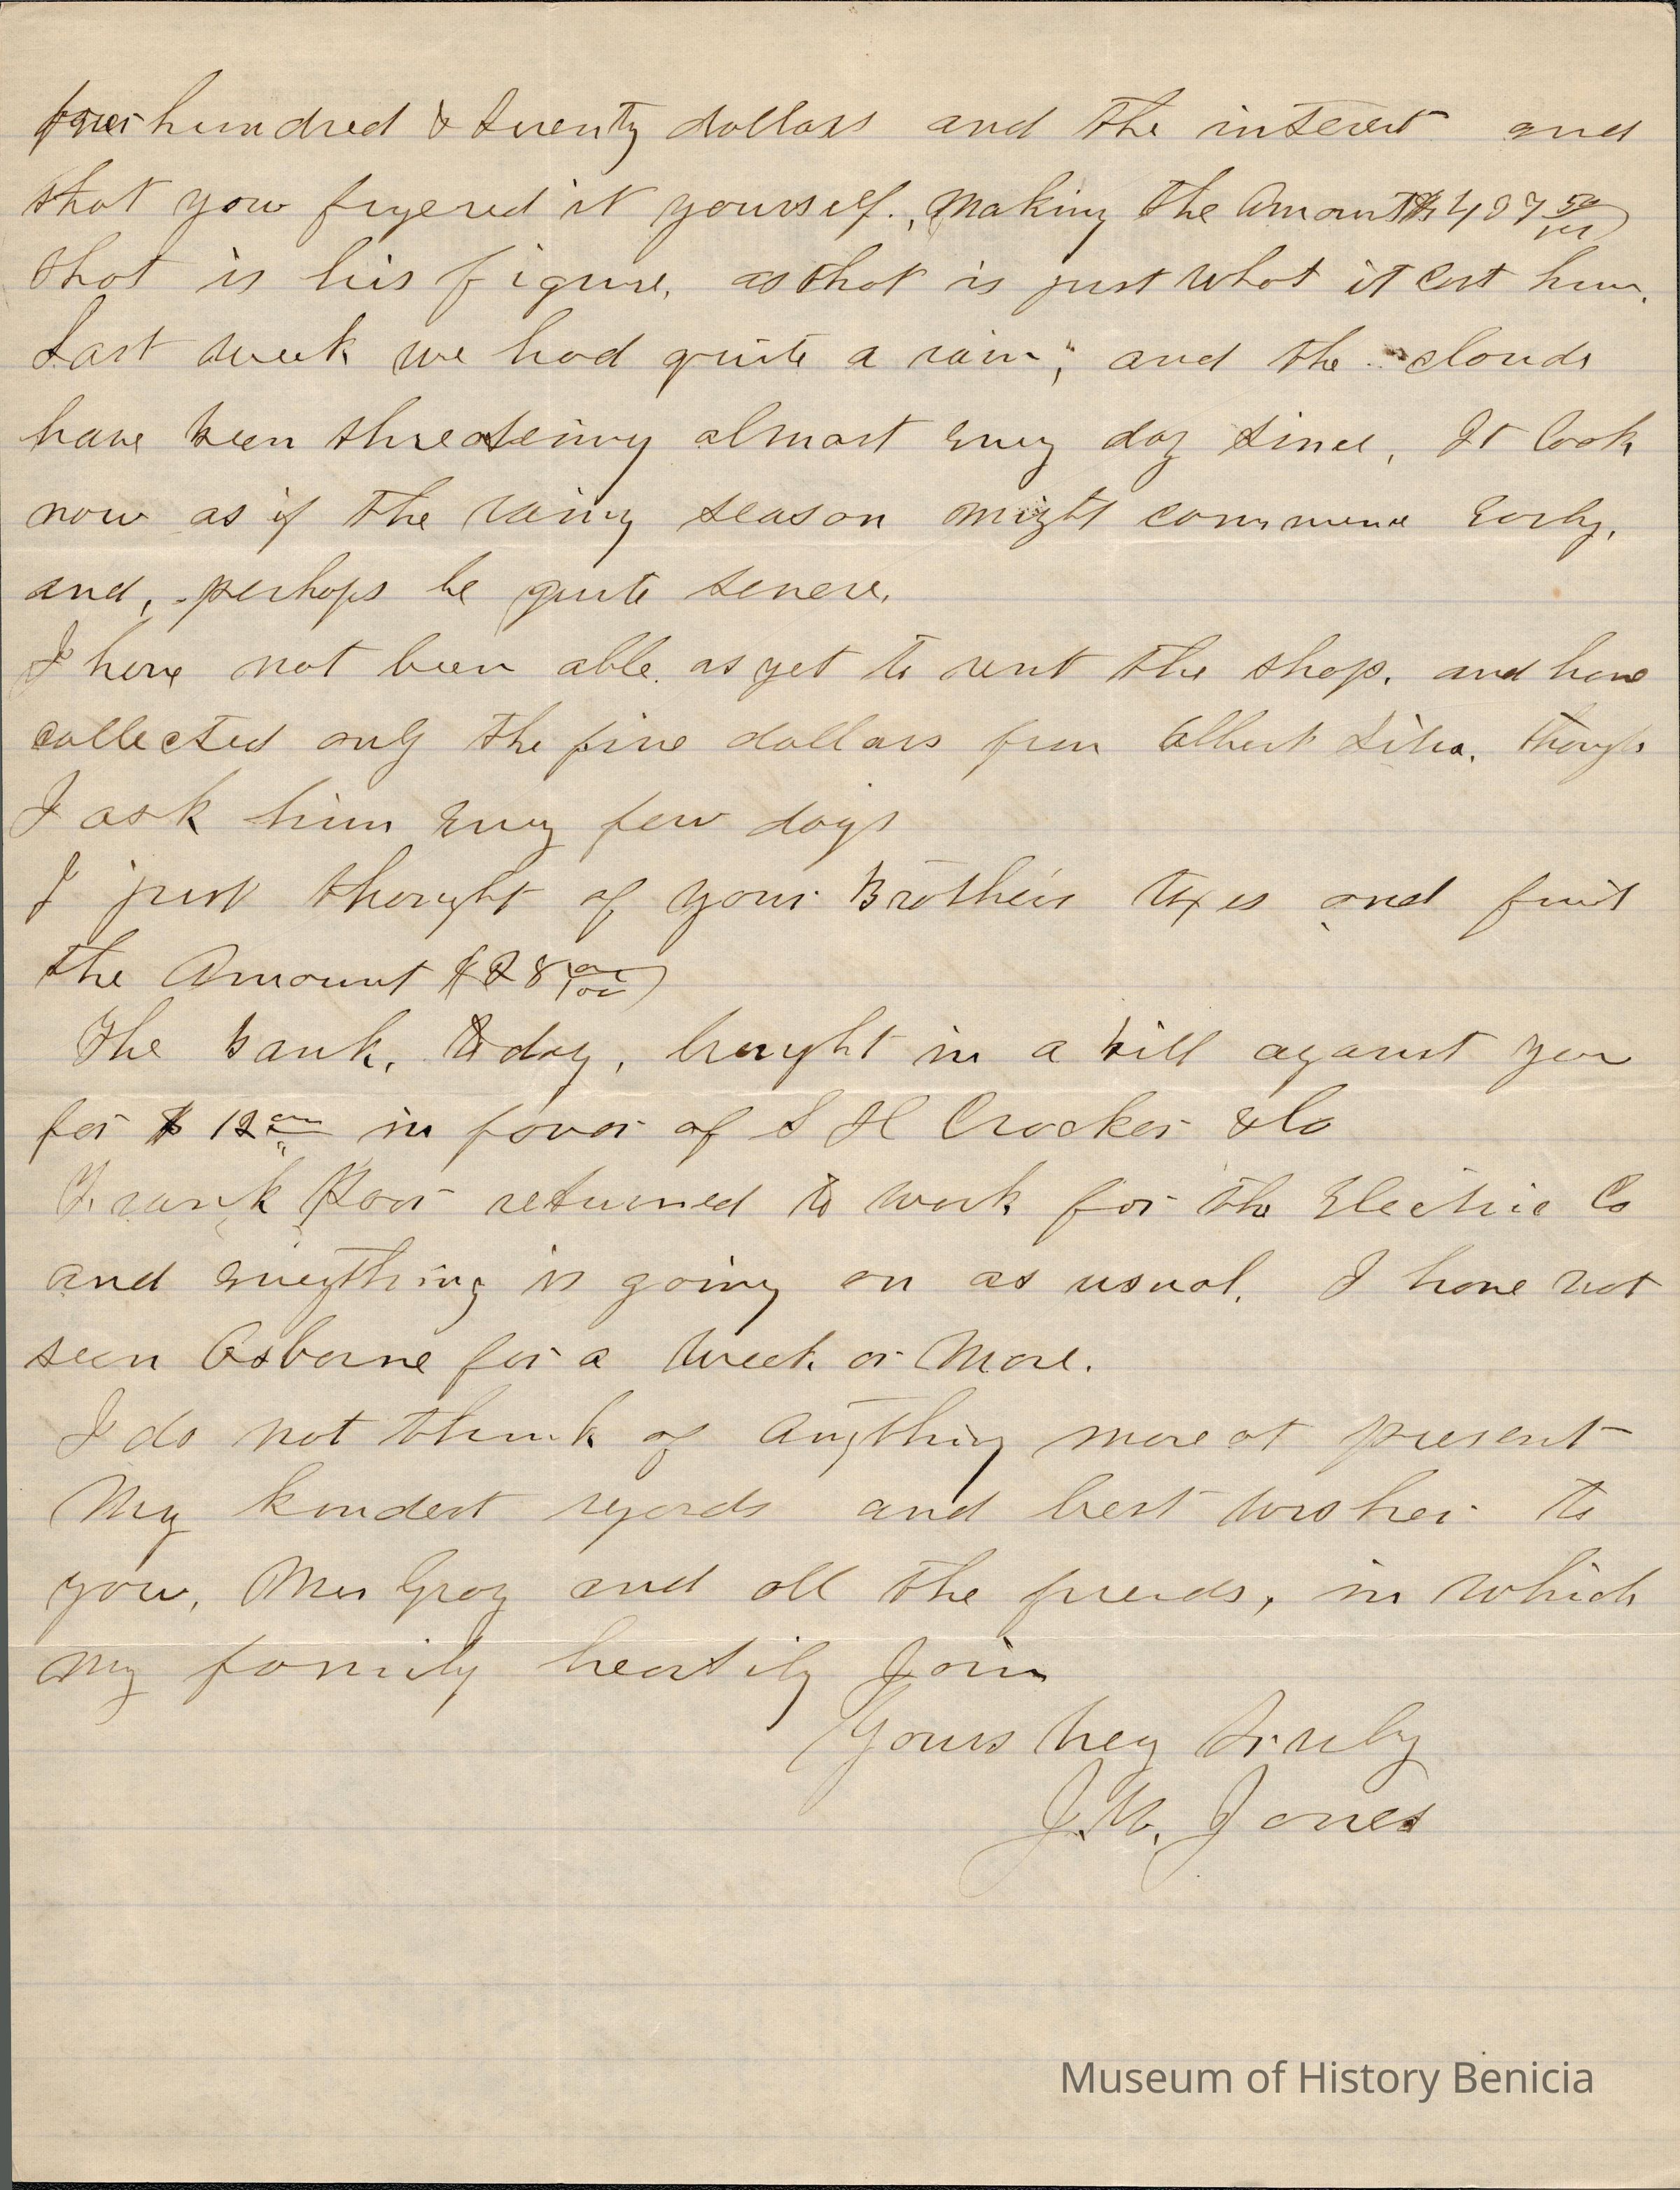 four hundred & twenty dollars and the interest and
that you figered it yourself., Making the Amount $497 50/100
that is his figure, as that is just what it cost him.
Last week we had quite a rain; and the clouds
have been threatening almost every day since, It look
now as if the rainy season might commence Early,
and, perhaps be quite severe.
I have not been able as yet to rent the shop, and have
collected only the five dollars from Albert though
I ask him Every few days
I just thought of your Brothers taxes and find
the Amount $28 00/00
The Bank, today, brought in a Bill against you
for $ 12 00 in favor of S H Crocker & Co
Frank returned to work for the Electric Co
and Everything is going on as usual. I have not
seen Osborne for a Week or More.
I do not think of Anything more at present
My kindest regards and best wishes to
you, Mrs Gray and all the friends, in which
my family heartily Join
Yours Very truly
J.W. Jones
Museum of History Benicia